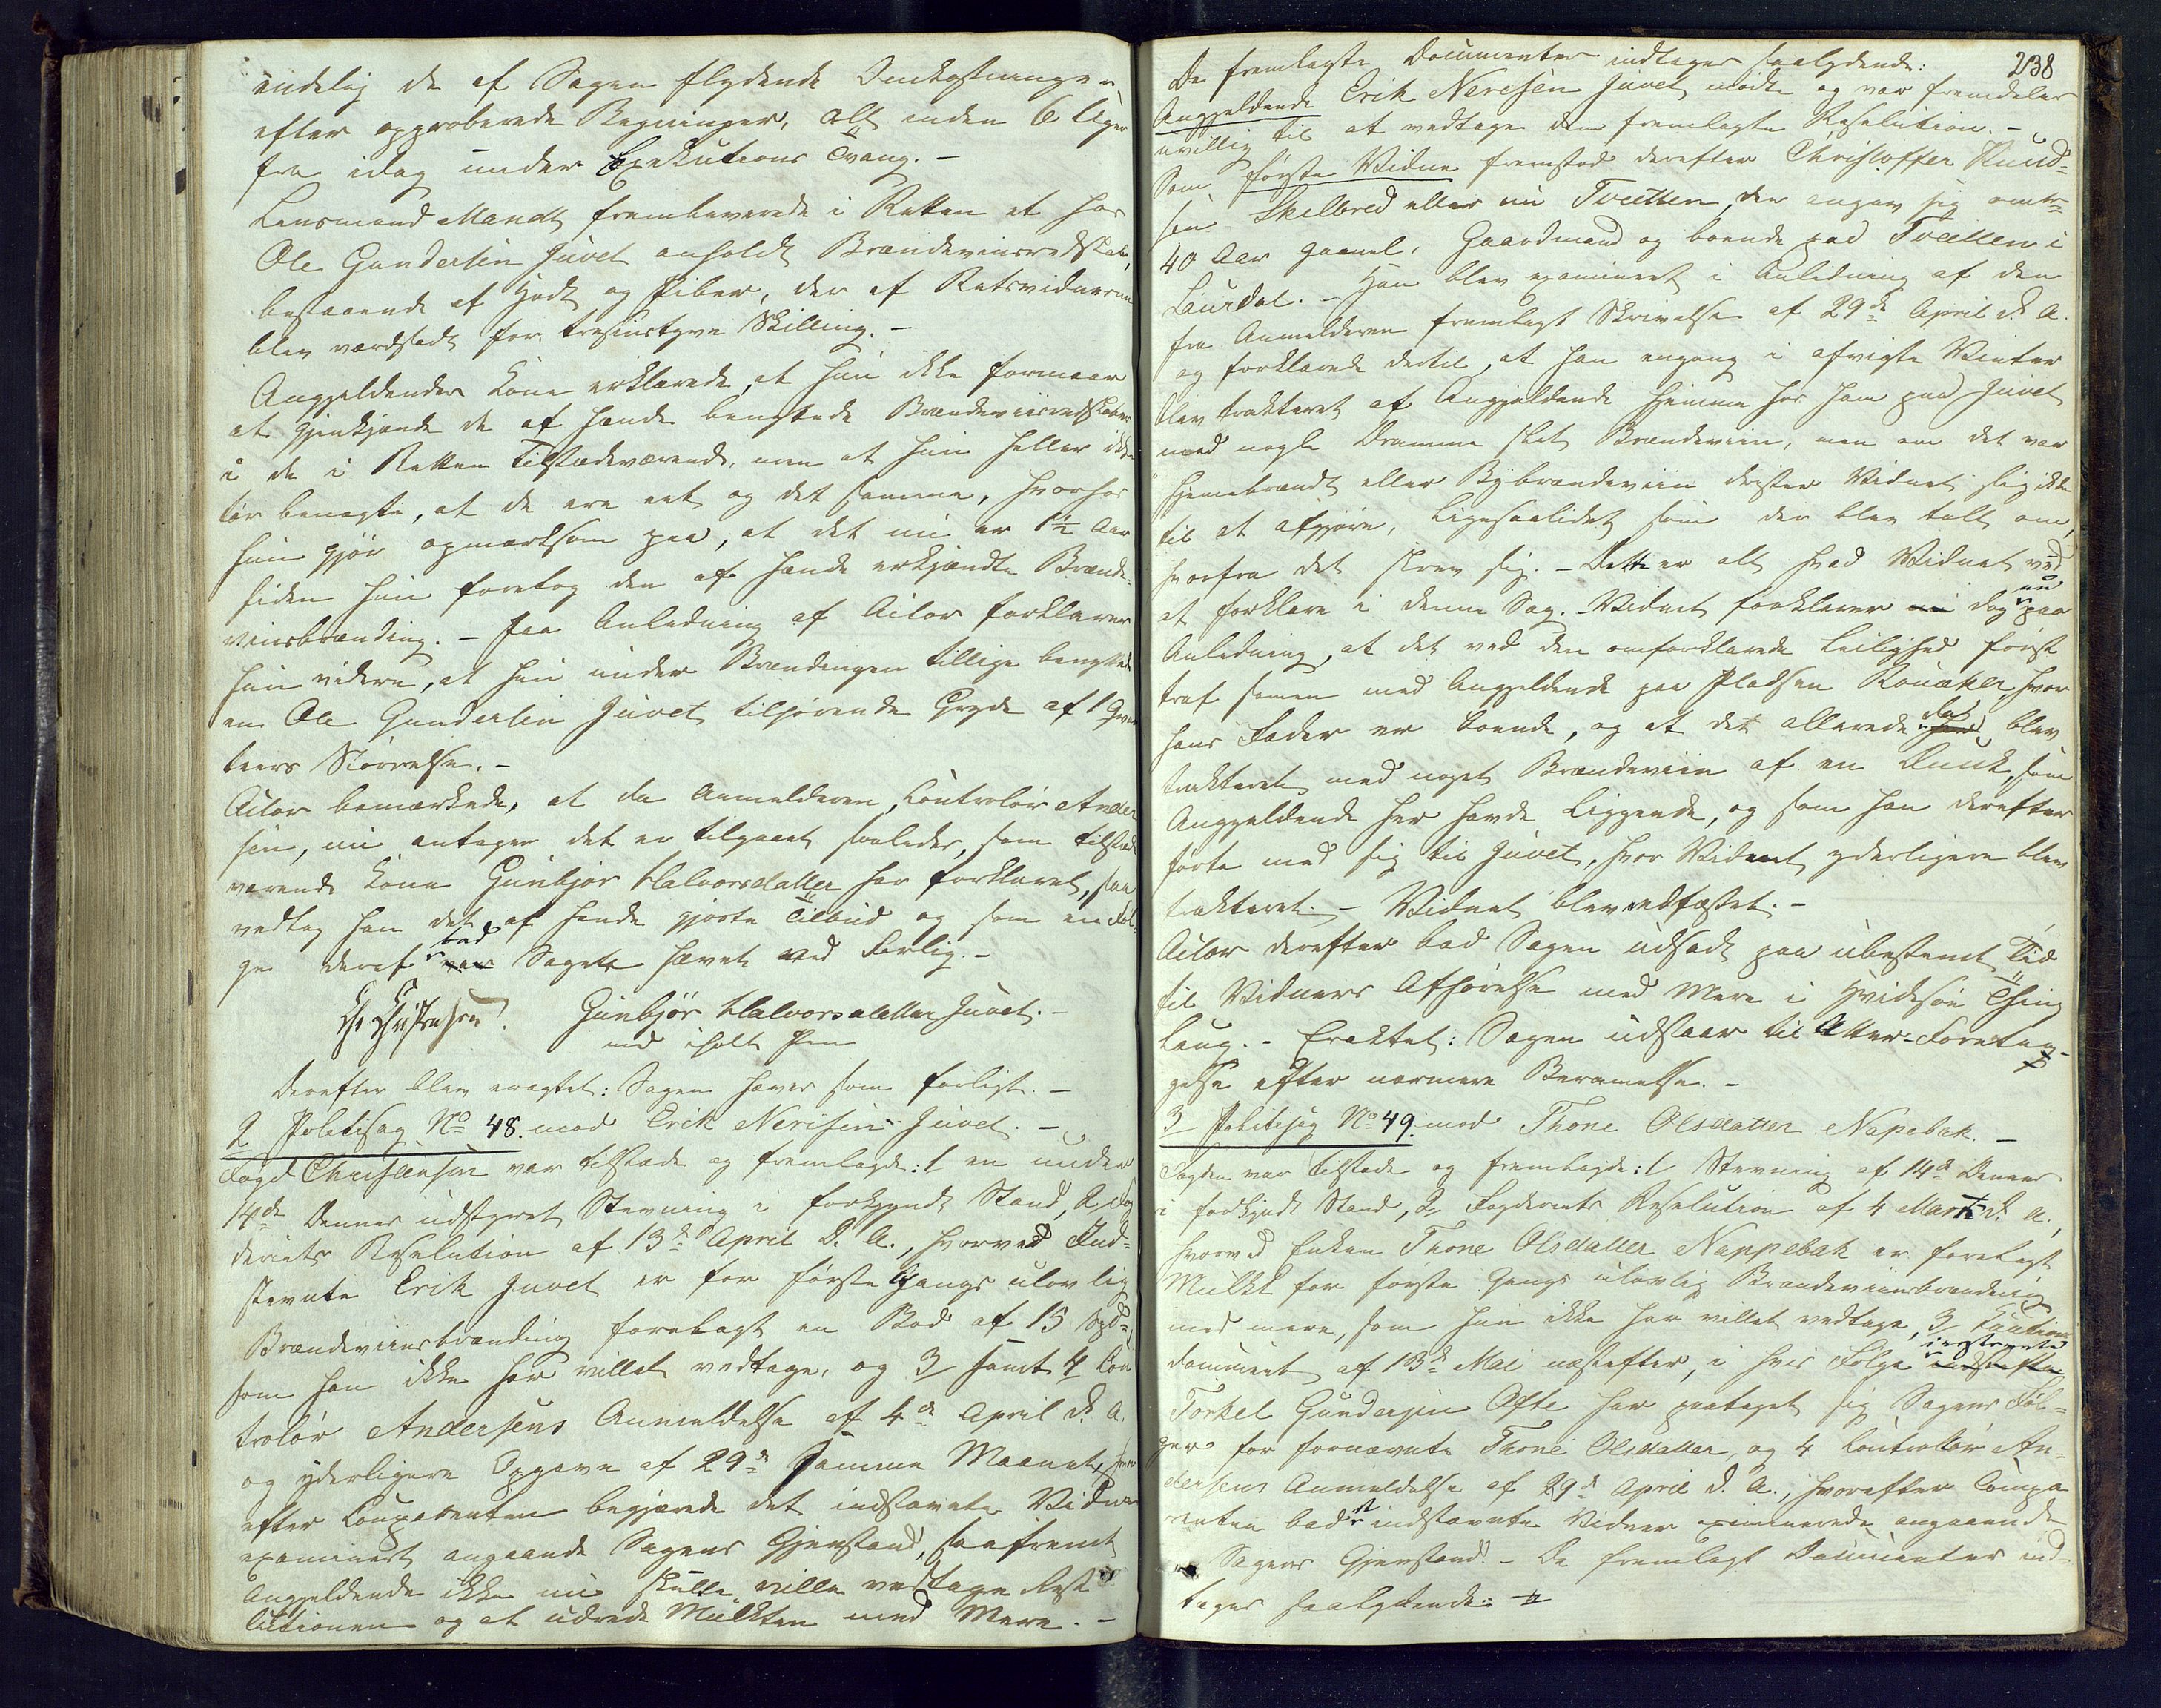 endelig de af Sagen flydende Omkostninger
efter approberede Regninger, Alt inden 6 Uger
fra idag under Exekutions Tvang. -
Lensmand Mandt frembeverede i Retten et hos
Ole Gundersen Juvet anholdt Brændeviinsredskab,
bestaaende af Hodt og Piber, der af Retsvidnerne
blev værdsadt for tresindstyve Skilling. -
Angjeldendes Kone erklærede, at hun ikke formaaer
at gjenkjænde de af hende benyttede Brændeviinsredskaber
i de i Retten Tilstædeværende, men at hun heller ikke
tør benægte, at de ere eet og det samme, hvorhos
hun gjør opmærksom paa, at det nu er 1½ Aar
siden hun foretog den af hende erkjændte Brænde-
viinsbrænding. - Paa Anledning af Actor forklarer
hun videre, at hun under Brændingen tillige benyttede
en Ole Gundersen Juvet tilhørende Gryde af 1 Qvar
teers Størrelse. -
Actor bemærkede, at da Anmelderen, Controlør Ander
sen, nu antager det er tilgaaet saaledes, som tilstæde
værende Kone Gunbjør Halvorsdatter har forklaret, saa
vedtog han det af hende gjorte Tilbud og som en Føl-
ge deraf bad Sagen hævet ved Forlig. -
Chr Christensen. Gunbjør Halvorsdatter Juvet. -
med iholdt Pen
Derefter blev eragtet: Sagen hæves som forligt. -
2 Politisag No 48. mod Erik Nerisen Juvet. -
Foged Christensen var tilstæde og fremlagde: 1 en under
14de Dennes udstyret Stevning i forkyndt Stand, 2 Fog
deriets Resolution af 13de April d. A., hvorved Ind-
stevnte Erik Juvet er for første Gangs ulovlig
Brændeviinsbrænding forelagt en Bod af 15 Spd
som han ikke har villet vedtage, og 3/ samt 4 Con
trolør Andersens Anmeldelse af 4de April d. A.
og yderligere Opgave af 29de samme Maaned, hvor
efter Comparenten begjærede det indstævnte Vidne
examineret angaaende Sagens Gjenstand, saafremt
Angjeldende ikke nu skulle ville vedtage Reso
lutionen og at udrede Mulkten med Mere. -
238
De fremlagte Documenter indtages saalydende:
Angjeldende Erik Nerisen Juvet mødte og var fremdeles
uvillig til at vedtage den fremlagte Resolution. -
Som første Vidne fremstod derefter Christoffer Knud-
sen Skelbred eller nu Tveitten, der angav sig omtr
40 Aar gammel, Gaardmand og boende paa Tveitten i
Laurdal. - Han blev examineret i Anledning af den
fra Anmelderen fremlagt Skrivelse af 29de April d. A.
og forklarede dertil, at han engang i afvigte Vinter
blev trakteret af Angjeldende hjemme hos ham paa Juvet
med nogle Dramme slet Brændeviin, men om det var
hjemebrændt eller Bybrændeviin drister Vidnet sig ikke
til at afgjøre, ligesaalidet som der blev talt om,
hvorfra det skrev sig. - Dette er alt hvad Vidnet ved
at forklare i denne Sag. - Vidnet forklarer dog nu paa
Anledning, at det ved den omforklarede Leilighed først
traf samen med Angjeldende paa Pladsen Rouaker, hvor
hans Fader er boende, og at det allerede der blev
trakteret med noget Brændeviin af en Dunk, som
Angjeldende her havde liggende, og som han derefter
førte med sig til Juvet, hvor Vidnet yderligere blev
trakteret. - Vidnet blev edfæstet. -
Actor derefter bad Sagen udsadt paa ubestemt Tid
til Vidners Afhørelse med Mere i Hvidesøe Thing
laug. - Eraktet: Sagen udstaar til Atter-Foretag-
gelse efter nærmere Berammelse. -
3 Politisag No 49. mod Thone Olsdatter Napebak. -
Fogden var tilstede og fremlagde: 1 Stevning af 14de Dennes
i forkyndt Stand, 2 Fogderiets Resolution af 4 Marts d. A.,
hvorved Enken Thone Olsdatter Nappebak er forelagt
Mulkt for første Gangs ulovlig Brændeviinsbrænding
med mere, som hun ikke har villet vedtage, 3 Cautions
document af 13de Mai næstefter, i hvis Følge indstevnte
Torkel Gundersen Ofte har paataget sig Sagens Føl-
ger for fornævnte Thone Olsdatter, og 4 Controllør An-
dersens Anmeldelse af 29de April d. A., hvorefter Compa
renten bad indstævnte Vidner examinerede angaaende
Sagens Gjenstand. - De fremlagt Documenter ind-
tages saalydende: -